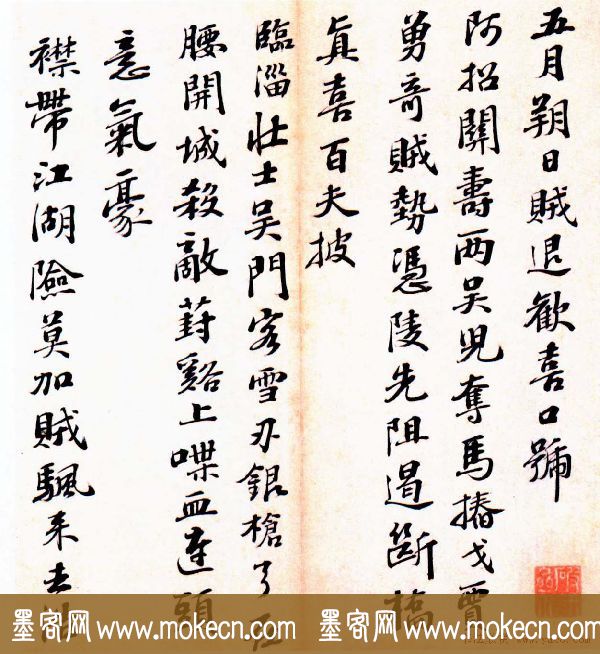 五月朔日賊退歡喜口號
阿招關壽西吳兒奪馬摏戈賈
勇奇賊勢憑陵先阻遏斷橋
真喜百夫披
臨淄壯士吳門客雪刃銀槍弓在
腰開城殺敵葑谿上喋血連頭
意氣豪
襟帶江湖險莫加賊颿来去
墨客网 www.mokecn.com 墨客网 www.mokecn.com